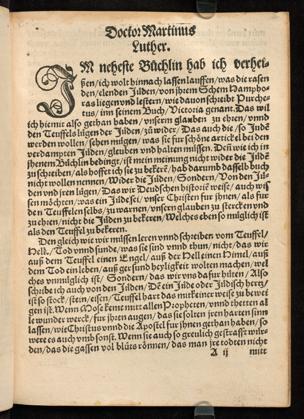 Doctor Martinus
Luther.
IM nehesten Büchlin hab ich verhei-
ßen/ ich wolt hinnach lassen lauffen/ was die rasen
den/ elenden Jüden/ von jhrem Schem Hampho-
ras liegen vnd lestern/ wie dauon schreibt Purche
tus/ inn seinem Buch/ Victoria genant. Das wil
ich hiemit also gethan haben/ vnserm glauben zu ehren/ vnnd
den Teuffels lügen der Jüden/ zů wider/ Das auch die/ so Jude
werden wollen/ sehen mügen/ was sie fur schöne artickel bei den
verdampten Jüden/ glauben vnd halten müssen. Denn wie ich in
jhenem Büchlin bedingt/ ist mein meinung nicht wider die Jüde
zu schreiben/ als hoffet ich sie zu bekere/ hab darumb dasselb buch
nicht wollen nennen/ Wider die Jüden/ Sondern/ Von den Jü-
den vnd jren lügen/ Das wir Deudschen historie weise/ auch wis
sen möchten/ was ein Jüde sei/ vnser Christen fur jhnen/ als fur
den Teuffeln selbs/ zu warnen/ vnsern glauben zu stercken vnd
zu ehren/ nicht die Jüden zu bekeren/ Welches eben so müglich ist
als den Teuffel zu bekeren.
Den gleich wie wir müssen leren vnnd schreiben vom Teuffel/
Hell/ Tod vnnd sunde/ was sie sind vnnd thun/ nicht/ das wir
auß dem Teuffel einen Engel/ auß der Hell einen Himel/ auß
dem Tod ein leben/ auß der sund heyligkeit wolten machen/ wel
ches vnmüglich ist/ Sondern/ das wir vns dafur hüten/ Also
schreibe ich auch von den Jüden/ Denn ein Jüde oder Jüdisch hertz/
ist so stock/ stein/ eisen/ Teuffel hart/ das mit keiner weise zu bewe-
gen ist. Wenn Mose kemt mit allen Propheten/ vnnd thetten al
le wunder werck/ fur jhren augen/ das sie solten jren harten sinn
lassen/ wie Christus vnnd die Apostel fur jhnen gethan haben/ so
were es auch vmb sonst. Wenn sie auch so greulich gestrafft würs-
den/ das die gassen voll blüts rönnen/ das man jre todten nicht
A ij mitt